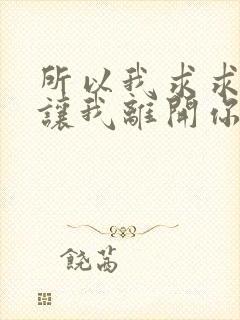 所以我求求
讓我離開你
饒茜